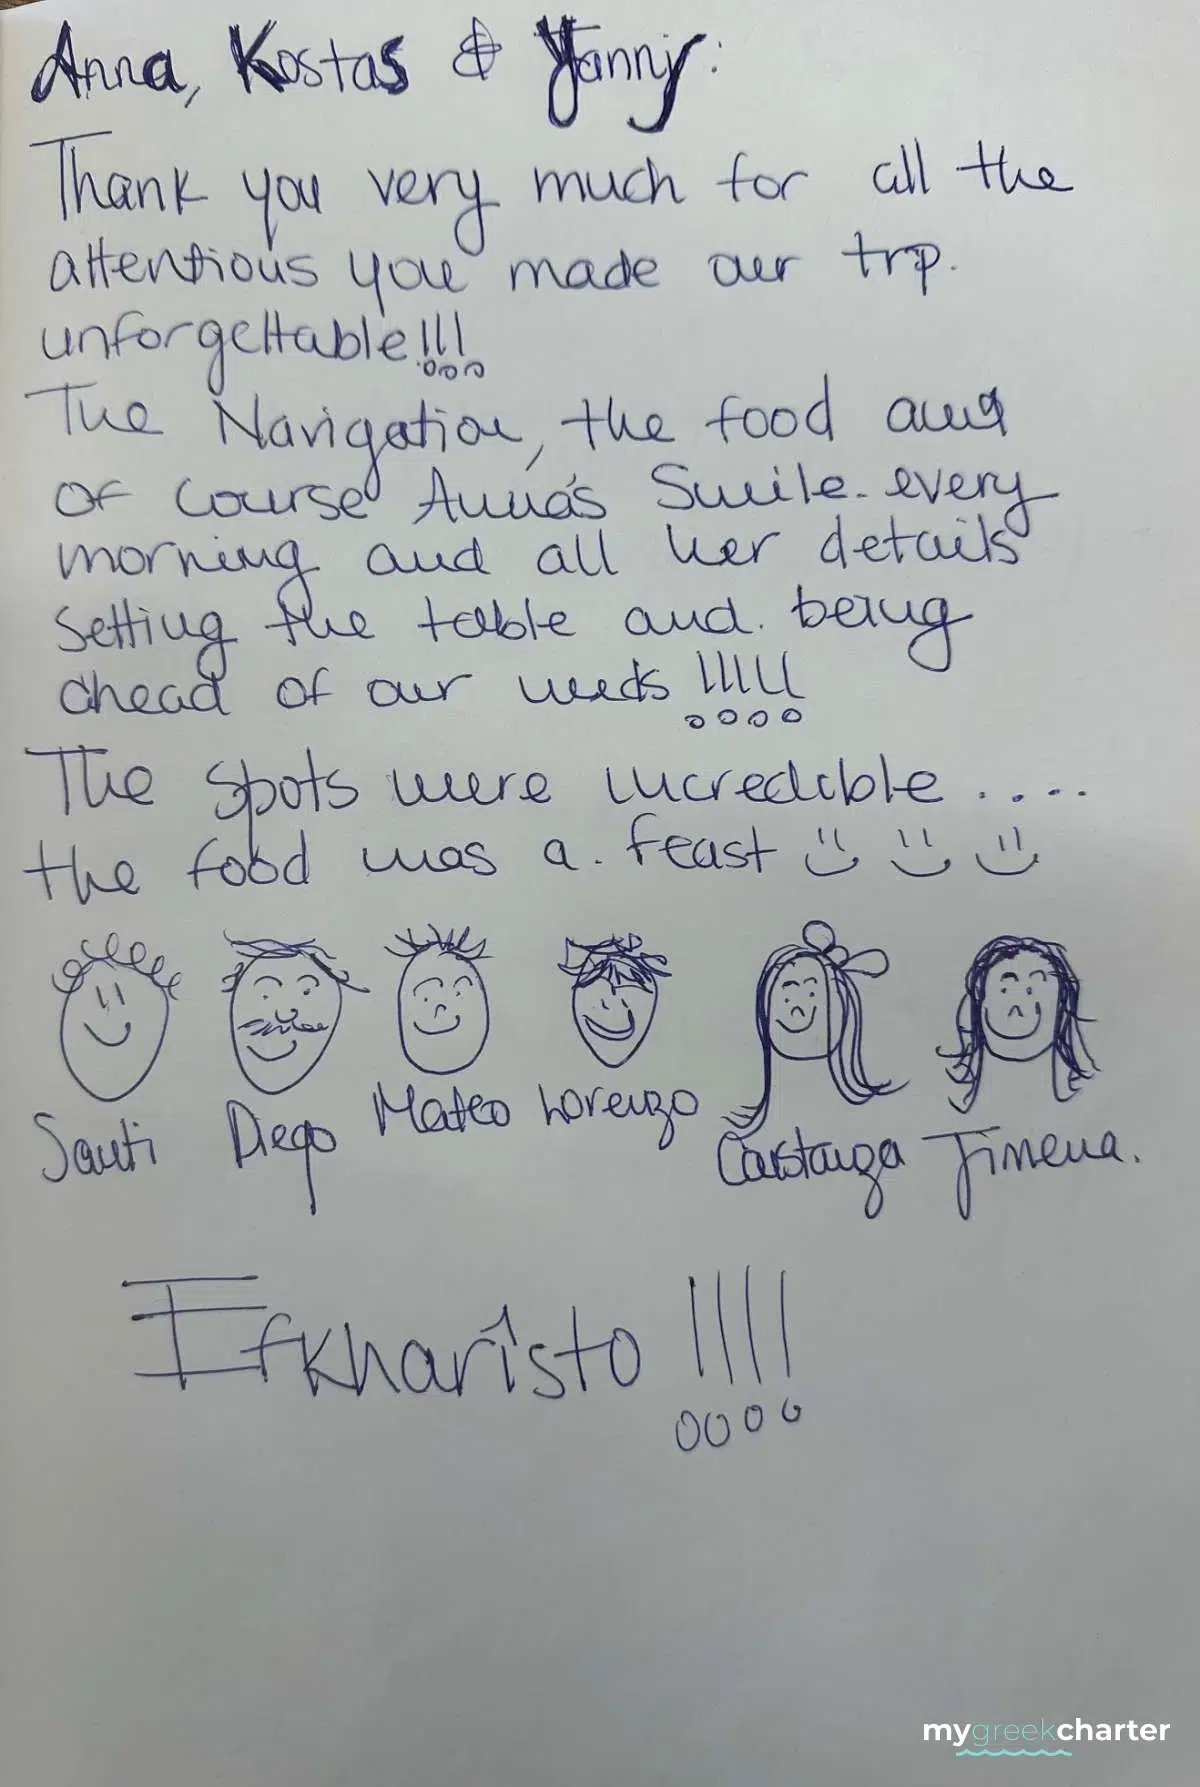 Anna, Kostas & Yanny:
Thank you very much for all the
attentious you made our trip.
unforgettable!!!
The Navigation, the food and
of course Anna's Smile. every
morning and all her details
setting the table and. being
ahead of our needs !!!!!
The spots were incredible ....
the food was a. feast
Santi Diego Mateo Lorenzo Constanza Jimena.
Efkharîsto !!!!
mygreekcharter